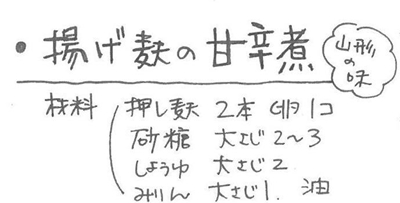 ・揚げ麩の甘辛煮
山形の味
材料 押し麩 2本 卵1コ
砂糖 大さじ2~3
しょうゆ 大さじ2
みりん 大さじ1. 油